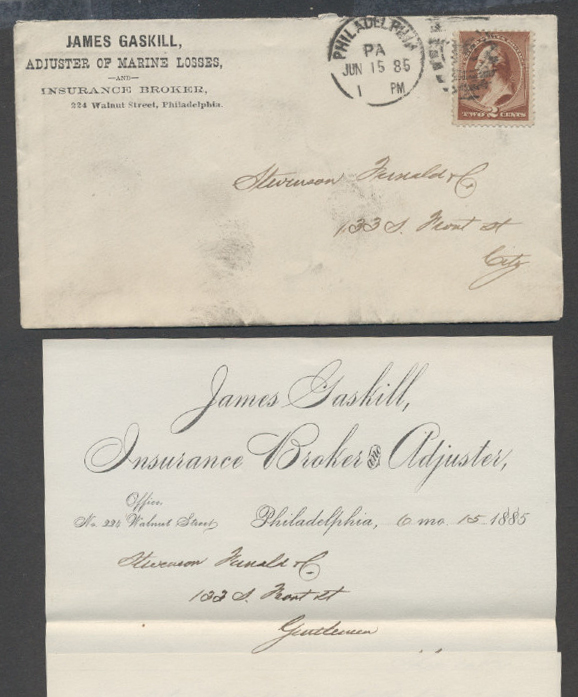 JAMES GASKILL,
ADJUSTER OF MARINE LOSSES,
—AND—
INSURANCE BROKER,
224 Walnut Street, Philadelphia.
PHILADELPHIA
PA
JUN 15 85
1 PM
TWO 2 CENTS
Stevenson Fernald & Co
133 S. Front st
City
James Gaskill,
Insurance Broker and Adjuster,
Office,
No. 224 Walnut Street
Philadelphia, 6 mo. 15 1885
Stevenson Fernald & Co
133 S. Front st
Gentlemen